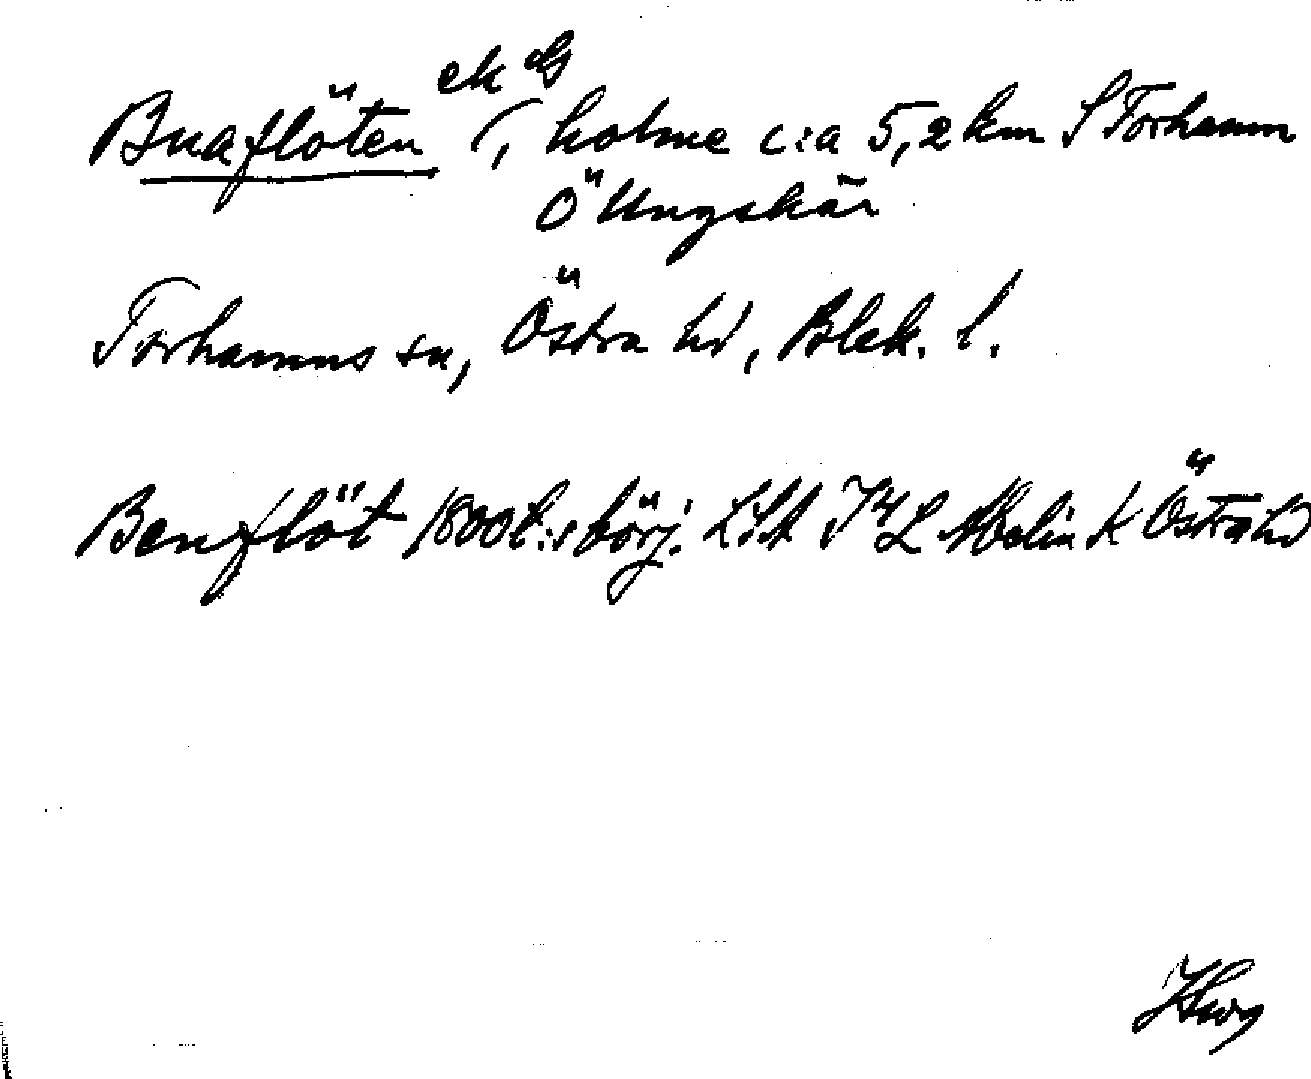 ek
Buaflöten (, holme c:a 5,2 km S Torhamn
Ö Ungskär
Torhamns sn, Östra hd, Blek. l.
Benflöt 1800t:s börj. LSA Melin K Östra hd